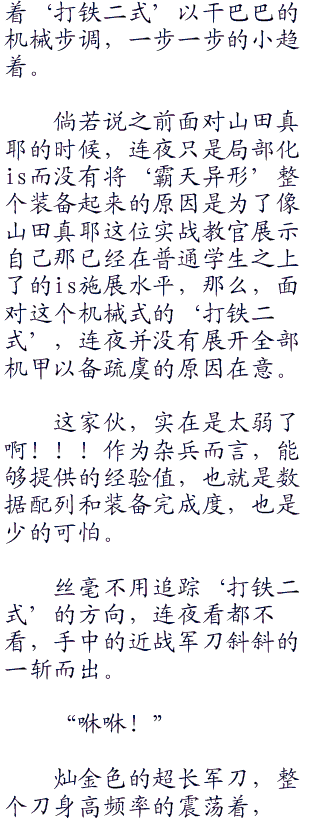 着‘打铁二式’以干巴巴的
机械步调，一步一步的小趋
着。
倘若说之前面对山田真
耶的时候，连夜只是局部化
is而没有将‘霸天异形’整
个装备起来的原因是为了像
山田真耶这位实战教官展示
自己那已经在普通学生之上
了的is施展水平，那么，面
对这个机械式的‘打铁二
式’，连夜并没有展开全部
机甲以备疏虞的原因在意。
这家伙，实在是太弱了
啊！！！作为杂兵而言，能
够提供的经验值，也就是数
据配列和装备完成度，也是
少的可怕。
丝毫不用追踪‘打铁二
式’的方向，连夜看都不
看，手中的近战军刀斜斜的
一斩而出。
“咻咻！”
灿金色的超长军刀，整
个刀身高频率的震荡着，